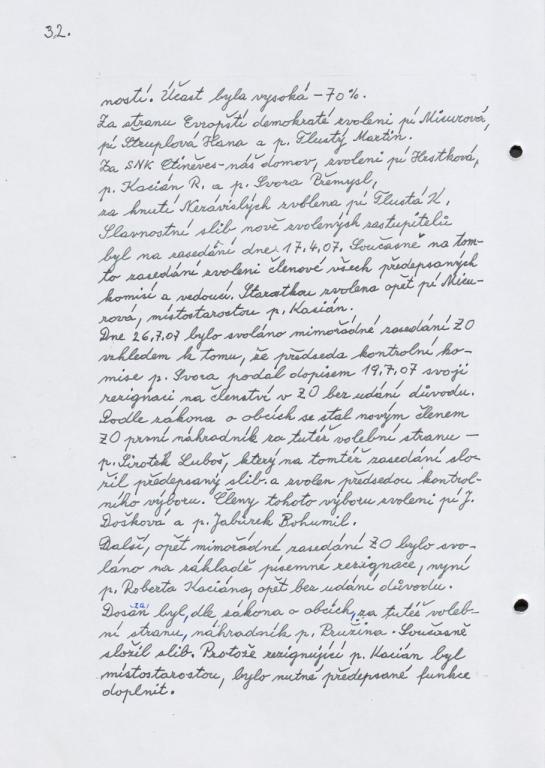 32.
ností. Účast byla vysoká – 70%.
Za stranu Evropští demokraté zvoleni pí Misurová,
pí Struplová Hana a p. Tlustý Martin.
Za SNK Ctiněves-náš domov, zvoleni pí Hrstková,
p. Kacián R. a p. Svora Přemysl,
za hnutí Nezávislých zvolena pí Tlustá K.
Slavnostní slib nově zvolených zastupitelů
byl na zasedání dne 17.4.07. Současně na tom-
to zasedání zvoleni členové všech předepsaných
komisí a vedoucí. Starostkou zvolena opět pí Misu-
rová, místostarostou p. Kacián.
Dne 26.7.07 bylo svoláno mimořádné zasedání ZO
vzhledem k tomu, že předseda kontrolní ko-
mise p. Svora podal dopisem 19.7.07 svoji
rezignaci na členství v ZO bez udání důvodu.
Podle zákona o obcích se stal novým členem
ZO první náhradník za tutéž volební stranu –
p. Sirotek Luboš, který na tomtéž zasedání slo-
žil předepsaný slib a zvolen předsedou kontrol-
ního výboru. Členy tohoto výboru zvoleni pí J.
Došková a p. Jabůrek Bohumil.
Další, opět mimořádné zasedání ZO bylo svo-
láno na základě písemné rezignace, nyní
p. Roberta Kaciána, opět bez udání důvodu.
Dosazán byl, dle zákona o obcích, za tutéž voleb-
ní stranu, náhradník p. Bružina. Současně
složil slib. Protože rezignující p. Kacián byl
místostarostou, bylo nutné předepsané funkce
doplnit.